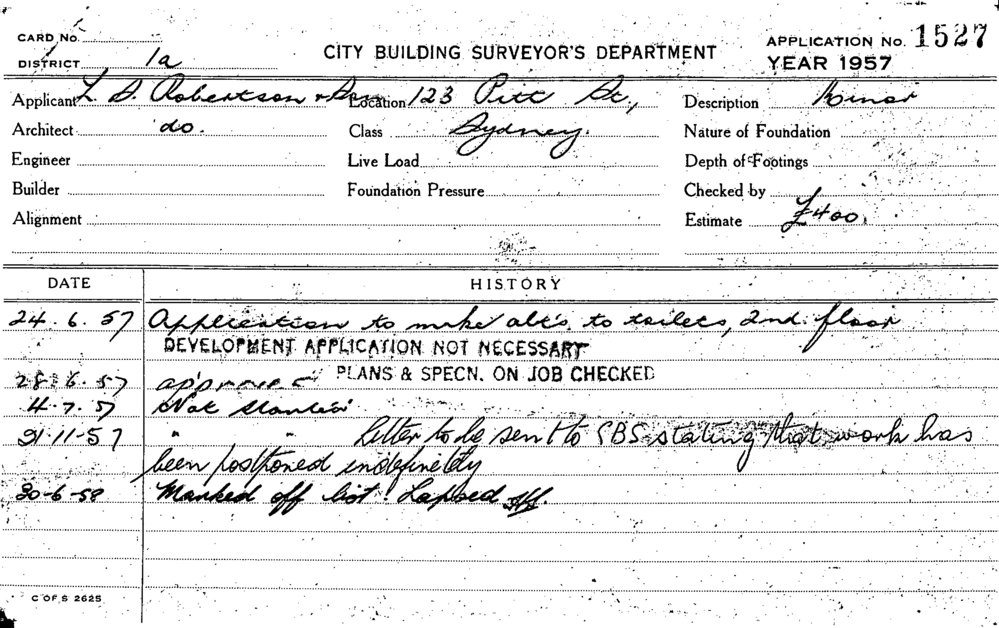 CARD No.
CITY BUILDING SURVEYOR'S DEPARTMENT
APPLICATION No. 1527
DISTRICT 1a
YEAR 1957
Applicant L. S. Robertson & Son Location 123 Pitt St., Description Minor
Architect do. Class Sydney. Nature of Foundation
Engineer Live Load Depth of Footings
Builder Foundation Pressure Checked by
Alignment Estimate £400.
DATE HISTORY
24.6.57 Application to make alt's. to toilets, 2nd. floor
DEVELOPMENT APPLICATION NOT NECESSARY
28.6.57 approved PLANS & SPECN. ON JOB CHECKED
4.7.57 Not Started
21-11-57 " " Letter to be sent to CBS stating that work has
been postponed indefinetly
30-6-58 Marked off list. Lapsed
C OF S 2625